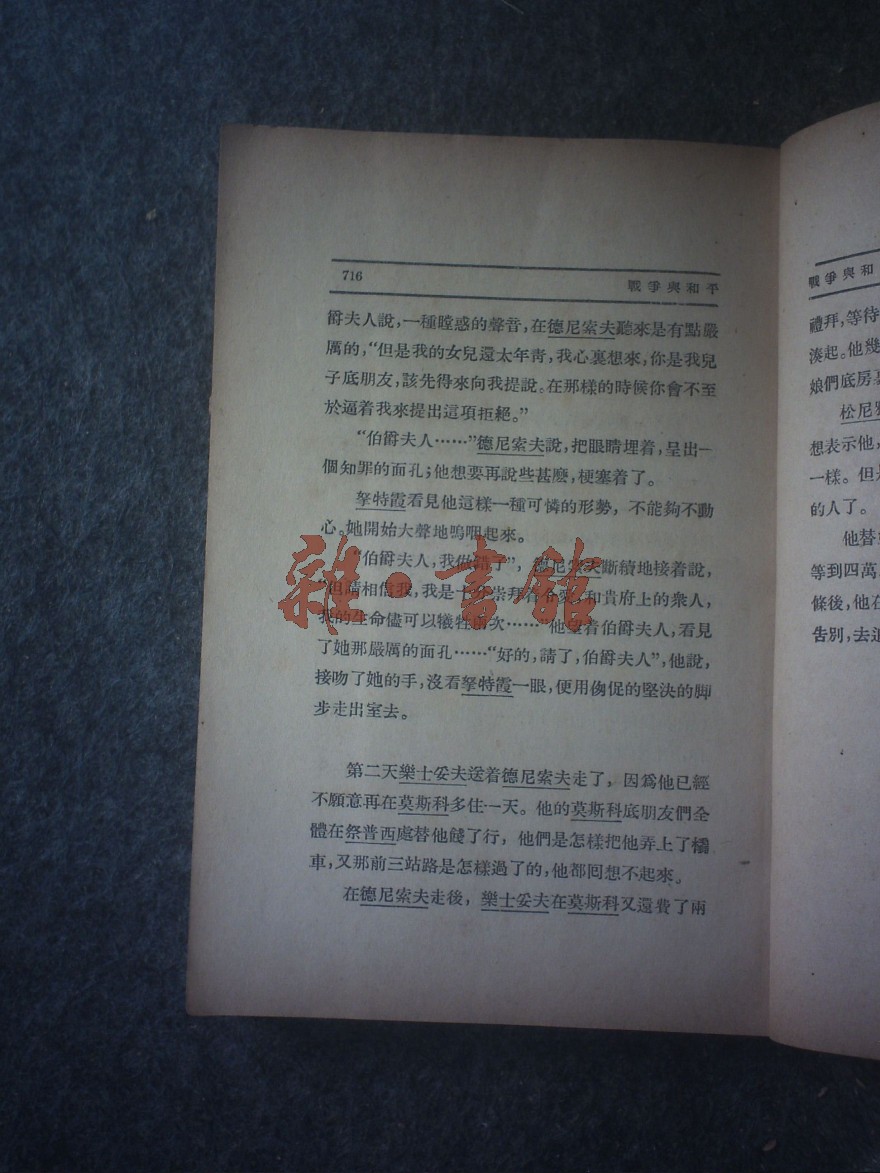 716
戰爭與和平
爵夫人說，一種瞠惑的聲音，在德尼索夫聽來是有點嚴
厲的，“但是我的女兒還太年青，我心裏想來，你是我兒
子底朋友，該先得來向我提說。在那樣的時候你會不至
於逼着我來提出這項拒絕。”
“伯爵夫人……”德尼索夫說，把眼睛埋着，呈出一
個知罪的面孔；他想要再說些甚麼，梗塞着了。
拏特霞看見他這樣一種可憐的形勢，不能夠不動
心。她開始大聲地嗚咽起來。
“伯爵夫人，我做錯了”，德尼索夫斷續地接着說，
“但請相信我，我是十分崇拜令愛，和貴府上的衆人，
我的生命儘可以犧牲兩次……”他望着伯爵夫人，看見
了她那嚴厲的面孔……“好的，請了，伯爵夫人”，他說，
接吻了她的手，沒看拏特霞一眼，便用侷促的堅決的脚
步走出室去。
第二天樂士妥夫送着德尼索夫走了，因爲他已經
不願意再在莫斯科多住一天。他的莫斯科底朋友們全
體在祭普西處替他餞了行，他們是怎樣把他弄上了橇
車，又那前三站路是怎樣過了的，他都囘想不起來。
在德尼索夫走後，樂士妥夫在莫斯科又還費了兩
戰爭與和
禮拜，等待
湊起。他幾
娘們底房裏
松尼雅
想表示他，
一樣。但是
的人了。
他替
等到四萬，
條後，他在
告別，去追
雜·書館